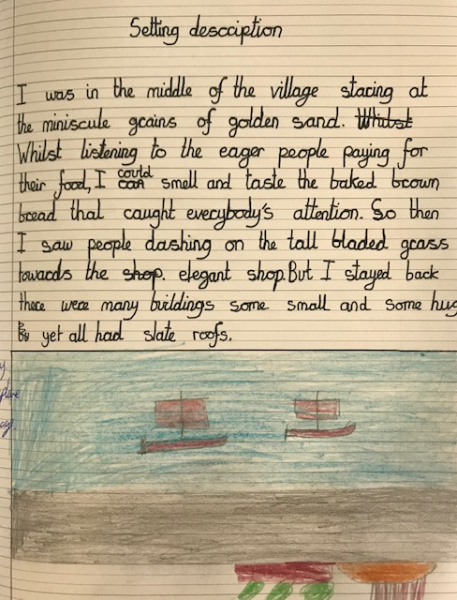 Setting description
I was in the middle of the village staring at
the miniscule grains of golden sand. Whilst
Whilst listening to the eager people paying for
could
their food, I can smell and taste the baked brown
bread that caught everybody's attention. So then
I saw people dashing on the tall bladed grass
towards the shop. elegant shop. But I stayed back
there were many buildings some small and some hug
yet all had slate roofs.